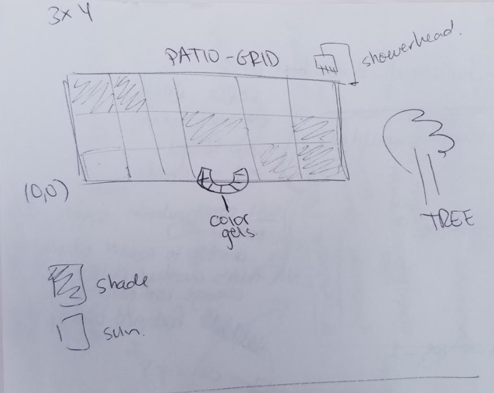 3x4
PATIO-GRID
showerhead.
(0,0)
color
gels
TREE
shade
sun.